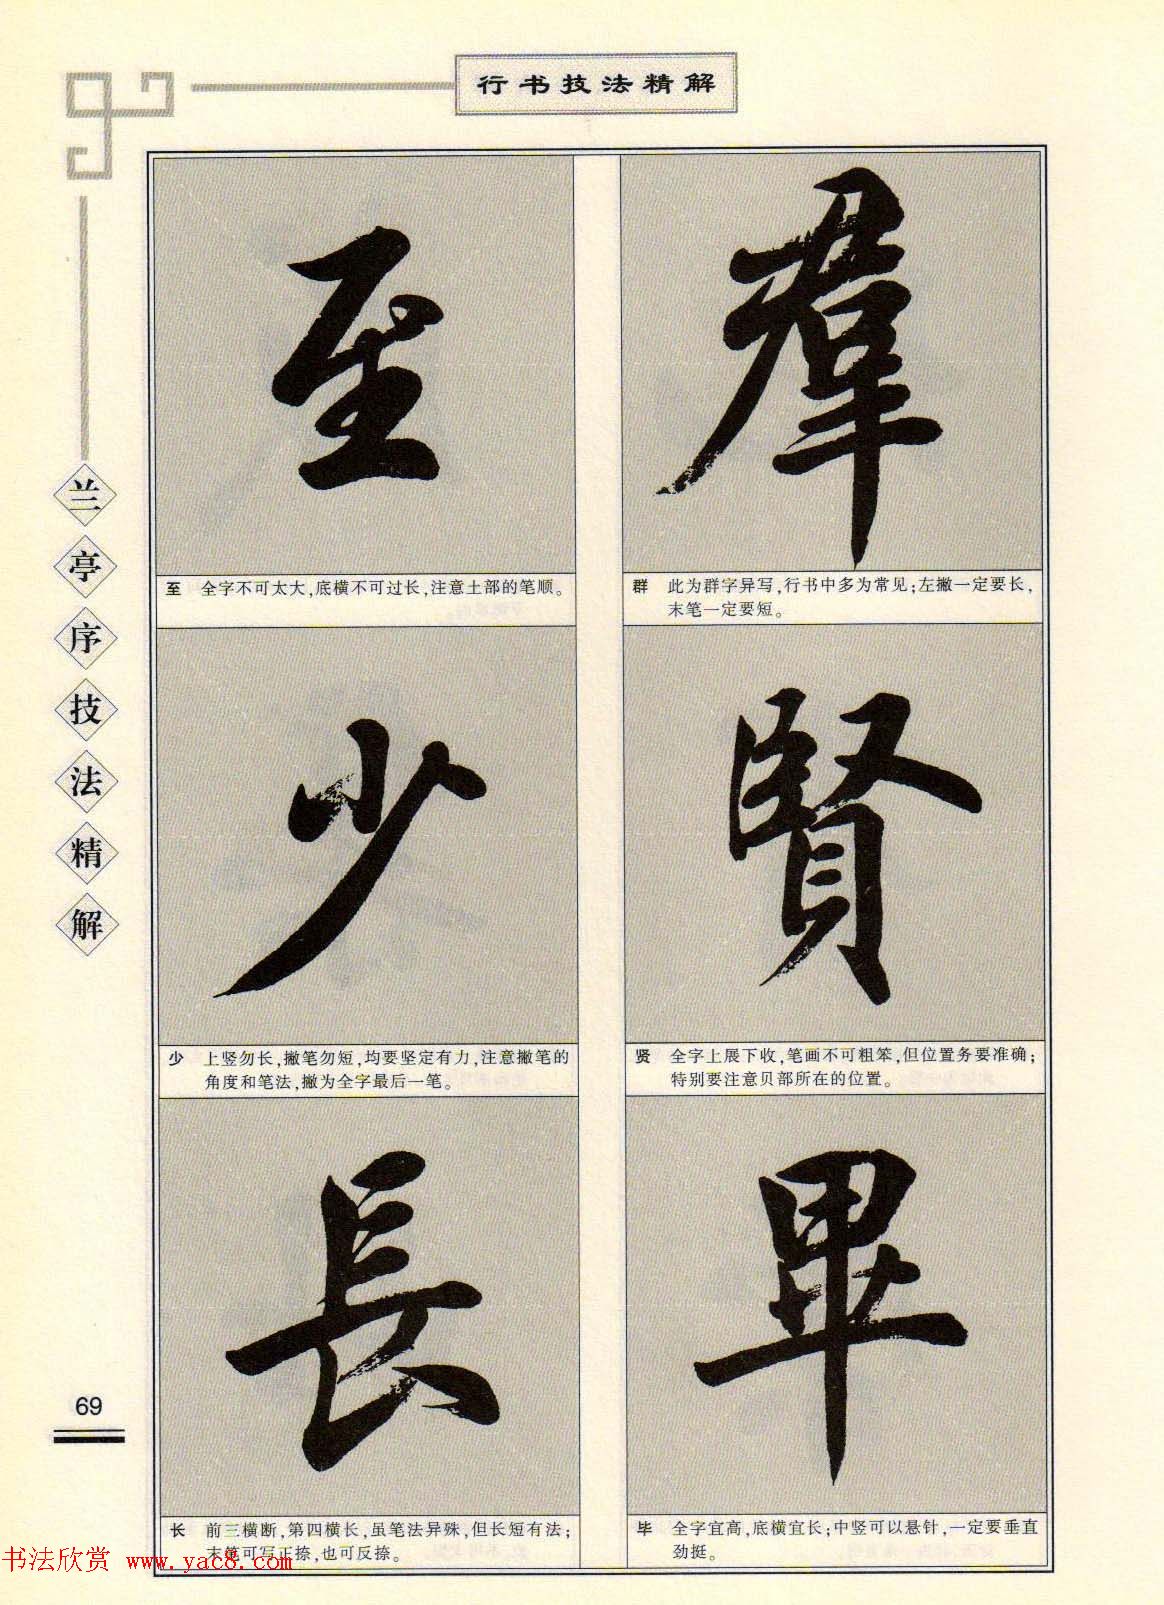 行书技法精解
兰亭序技法精解
群
群 此为群字异写，行书中多为常见；左撇一定要长，
末笔一定要短。
賢
贤 全字上展下收，笔画不可粗笨，但位置务要准确；
特别要注意贝部所在的位置。
畢
毕 全字宜高，底横宜长；中竖可以悬针，一定要垂直
劲挺。
至
至 全字不可太大，底横不可过长，注意土部的笔顺。
少
少 上竖勿长，撇笔勿短，均要坚定有力，注意撇笔的
角度和笔法，撇为全字最后一笔。
長
长 前三横断，第四横长，虽笔法异殊，但长短有法；
末笔可写正捺，也可反捺。
69
书法欣赏 www.yac8.com